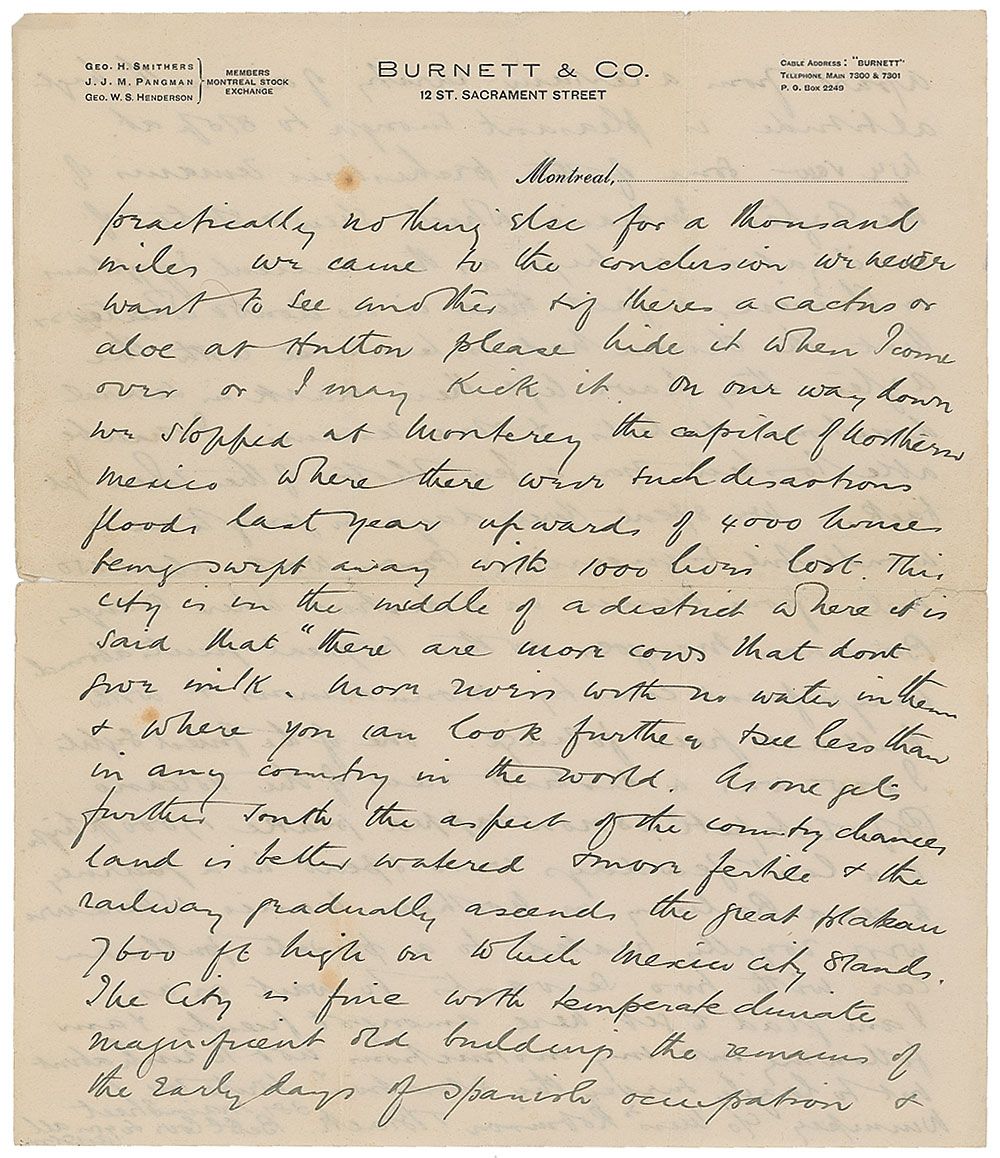 GEO. H. SMITHERS
J. J. M. PANGMAN
GEO. W. S. HENDERSON
MEMBERS
MONTREAL STOCK
EXCHANGE
BURNETT & CO.
12 ST. SACRAMENT STREET
CABLE ADDRESS: "BURNETT"
TELEPHONE MAIN 7300 & 7301
P. O. BOX 2249
Montreal,
practically nothing else for a thousand
miles we came to the conclusion we never
want to see another & if theres a cactus or
aloe at Hutton please hide it when I come
over or I may kick it. On our way down
we stopped at Monterey the capital of Northern
Mexico where there were such disastrous
floods last year upwards of 4000 houses
being swept away with 1000 lives lost. This
city is in the middle of a district where it is
said that "there are more cows that dont
give milk. More rivers with no water in them
& where you can look further & see less than
in any country in the world. As one gets
further South the aspect of the country changes
land is better watered & more fertile & the
railway gradually ascends the great plateau
7600 ft high on which Mexico city stands.
The City is fine with temperate climate
magnificent old buildings the remains of
the early days of Spanish occupation &